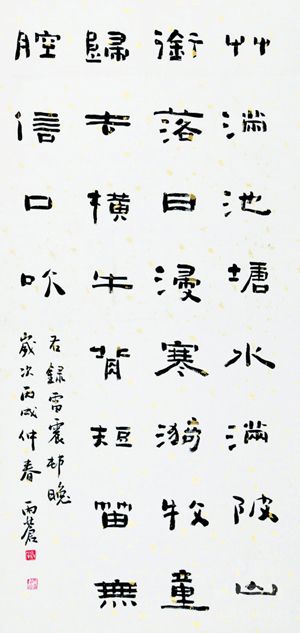 艸滿池塘水滿陂山
銜落日浸寒漪牧童
歸去橫牛背短笛無
腔信口吹
右錄雷震邨晚
歲次丙戌仲春 雨蒼